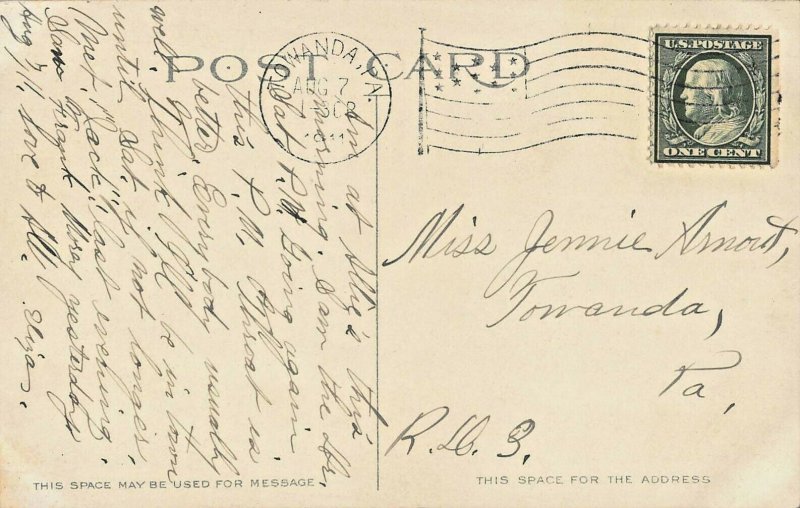 POST CARD
TOWANDA, PA.
AUG 7
1911
U.S. POSTAGE
ONE CENT
Am at Allie's this
morning. I am the
Sat P.M. Going again
this P.M. Throat is
better. Everybody usually
well. Think I'll be in town
until Sat. if not longer.
Met "Jack" last evening.
Saw Frank yesterday
Aug 7/11. Love to All. Eliza.
Miss Jennie Arnout,
Towanda,
Pa,
R. D. 3.
THIS SPACE MAY BE USED FOR MESSAGE
THIS SPACE FOR THE ADDRESS